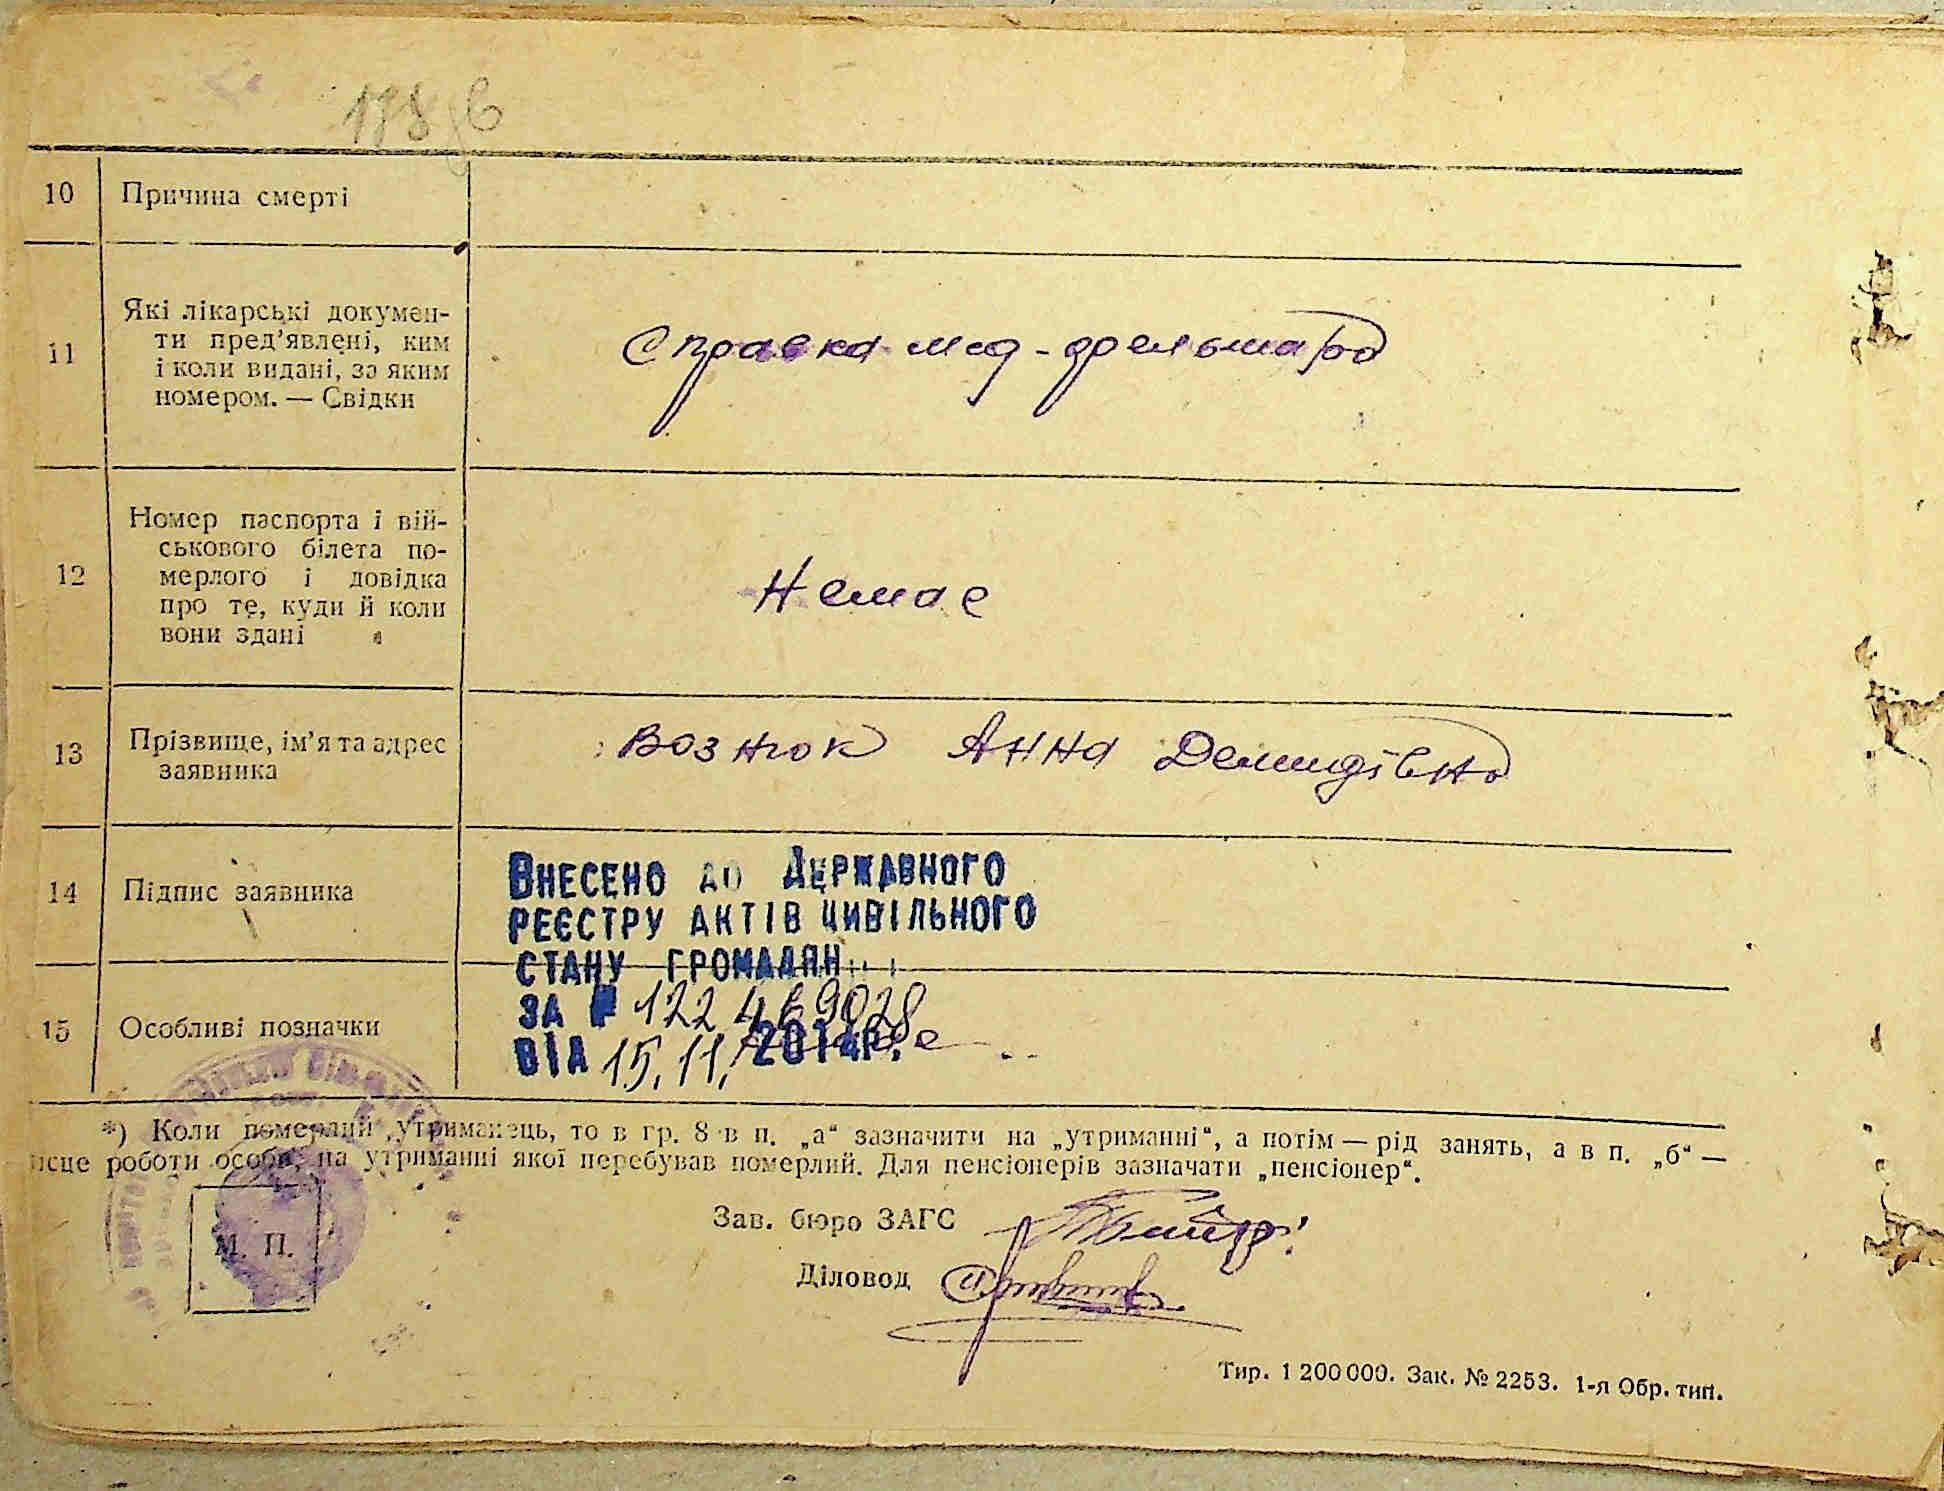 10 Причина смерті
11 Які лікарські докумен-
ти пред’явлені, ким
і коли видані, за яким
номером. — Свідки
Справка мед-фельшара
12 Номер паспорта і вій-
ськового білета по-
мерлого і довідка
про те, куди й коли
вони здані
Немае
13 Прізвище, ім’я та адрес
заявника
Вознюк Анна Демидівна
14 Підпис заявника
15 Особливі позначки
Внесено до Державного
реєстру актів цивільного
стану громадян
за № 122469028
від 15.11.2014р.
*) Коли померлий утриманець, то в гр. 8 в п. „а“ зазначити на „утриманні“, а потім — рід занять, а в п. „б“ —
ісце роботи особи, на утриманні якої перебував померлий. Для пенсіонерів зазначати „пенсіонер“.
М. П.
Зав. бюро ЗАГС
Діловод
Тир. 1 200 000. Зак. № 2253. 1-я Обр. тип.